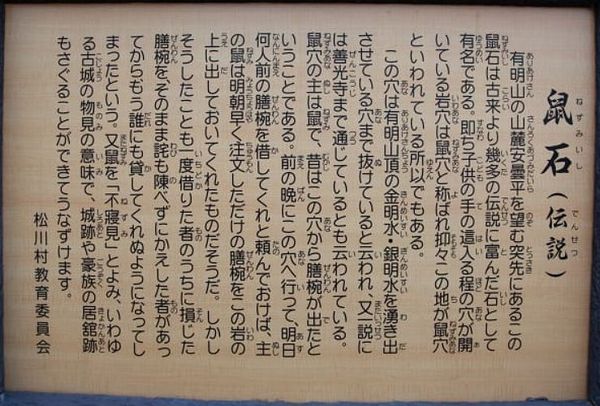 鼠石(伝説)
有明の山麓安曇平を望む突先にあるこの
鼠石は古来より幾多の伝説に富んだ石として
有名である。即ち子供の手の這入る程の穴が開
いている岩穴は鼠穴と称ばれ抑々この地が鼠穴
といわれている所以でもある。
この穴は有明山頂の金明水・銀明水を湧き出
させている穴まで抜けていると云われ、又一説に
は善光寺まで通じているとも云われている。
鼠穴の主は鼠で、昔はこの穴から膳椀が出たと
いうことである。前の晩にこの穴へ行って、明日
何人前の膳椀を借してくれと頼んでおけば、主
の鼠は明朝早く注文しただけの膳椀をこの岩の
上に出しておいてくれたものだそうだ。しかし
そうしたことも一度借りた者のうちに損じた
膳椀を、そのまま詫も陳べずにかえした者があっ
てからもう誰にも貸してくれぬようになってし
まったという。又鼠を「不寝見」とよみ、いわゆ
る古城の物見の意味で、城跡や豪族の居舘跡
もさぐることができてうなずけます。
松川村教育委員会